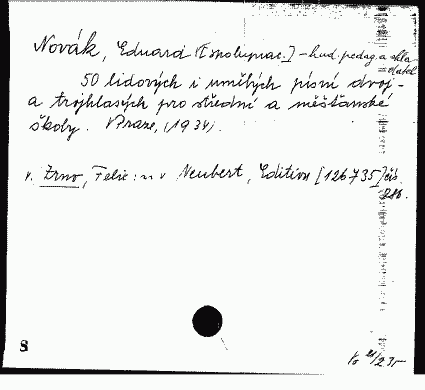 Novák, Eduard [spoluprac.] - hud. pedag. a skla
datel
50 lidových i umělých písní dvoj-
a trojhlasých pro střední a měšťanské
školy. Praze, (1934).
v. Zrno, Felix: v Neubert, Edition [126735] čís.
286.
8